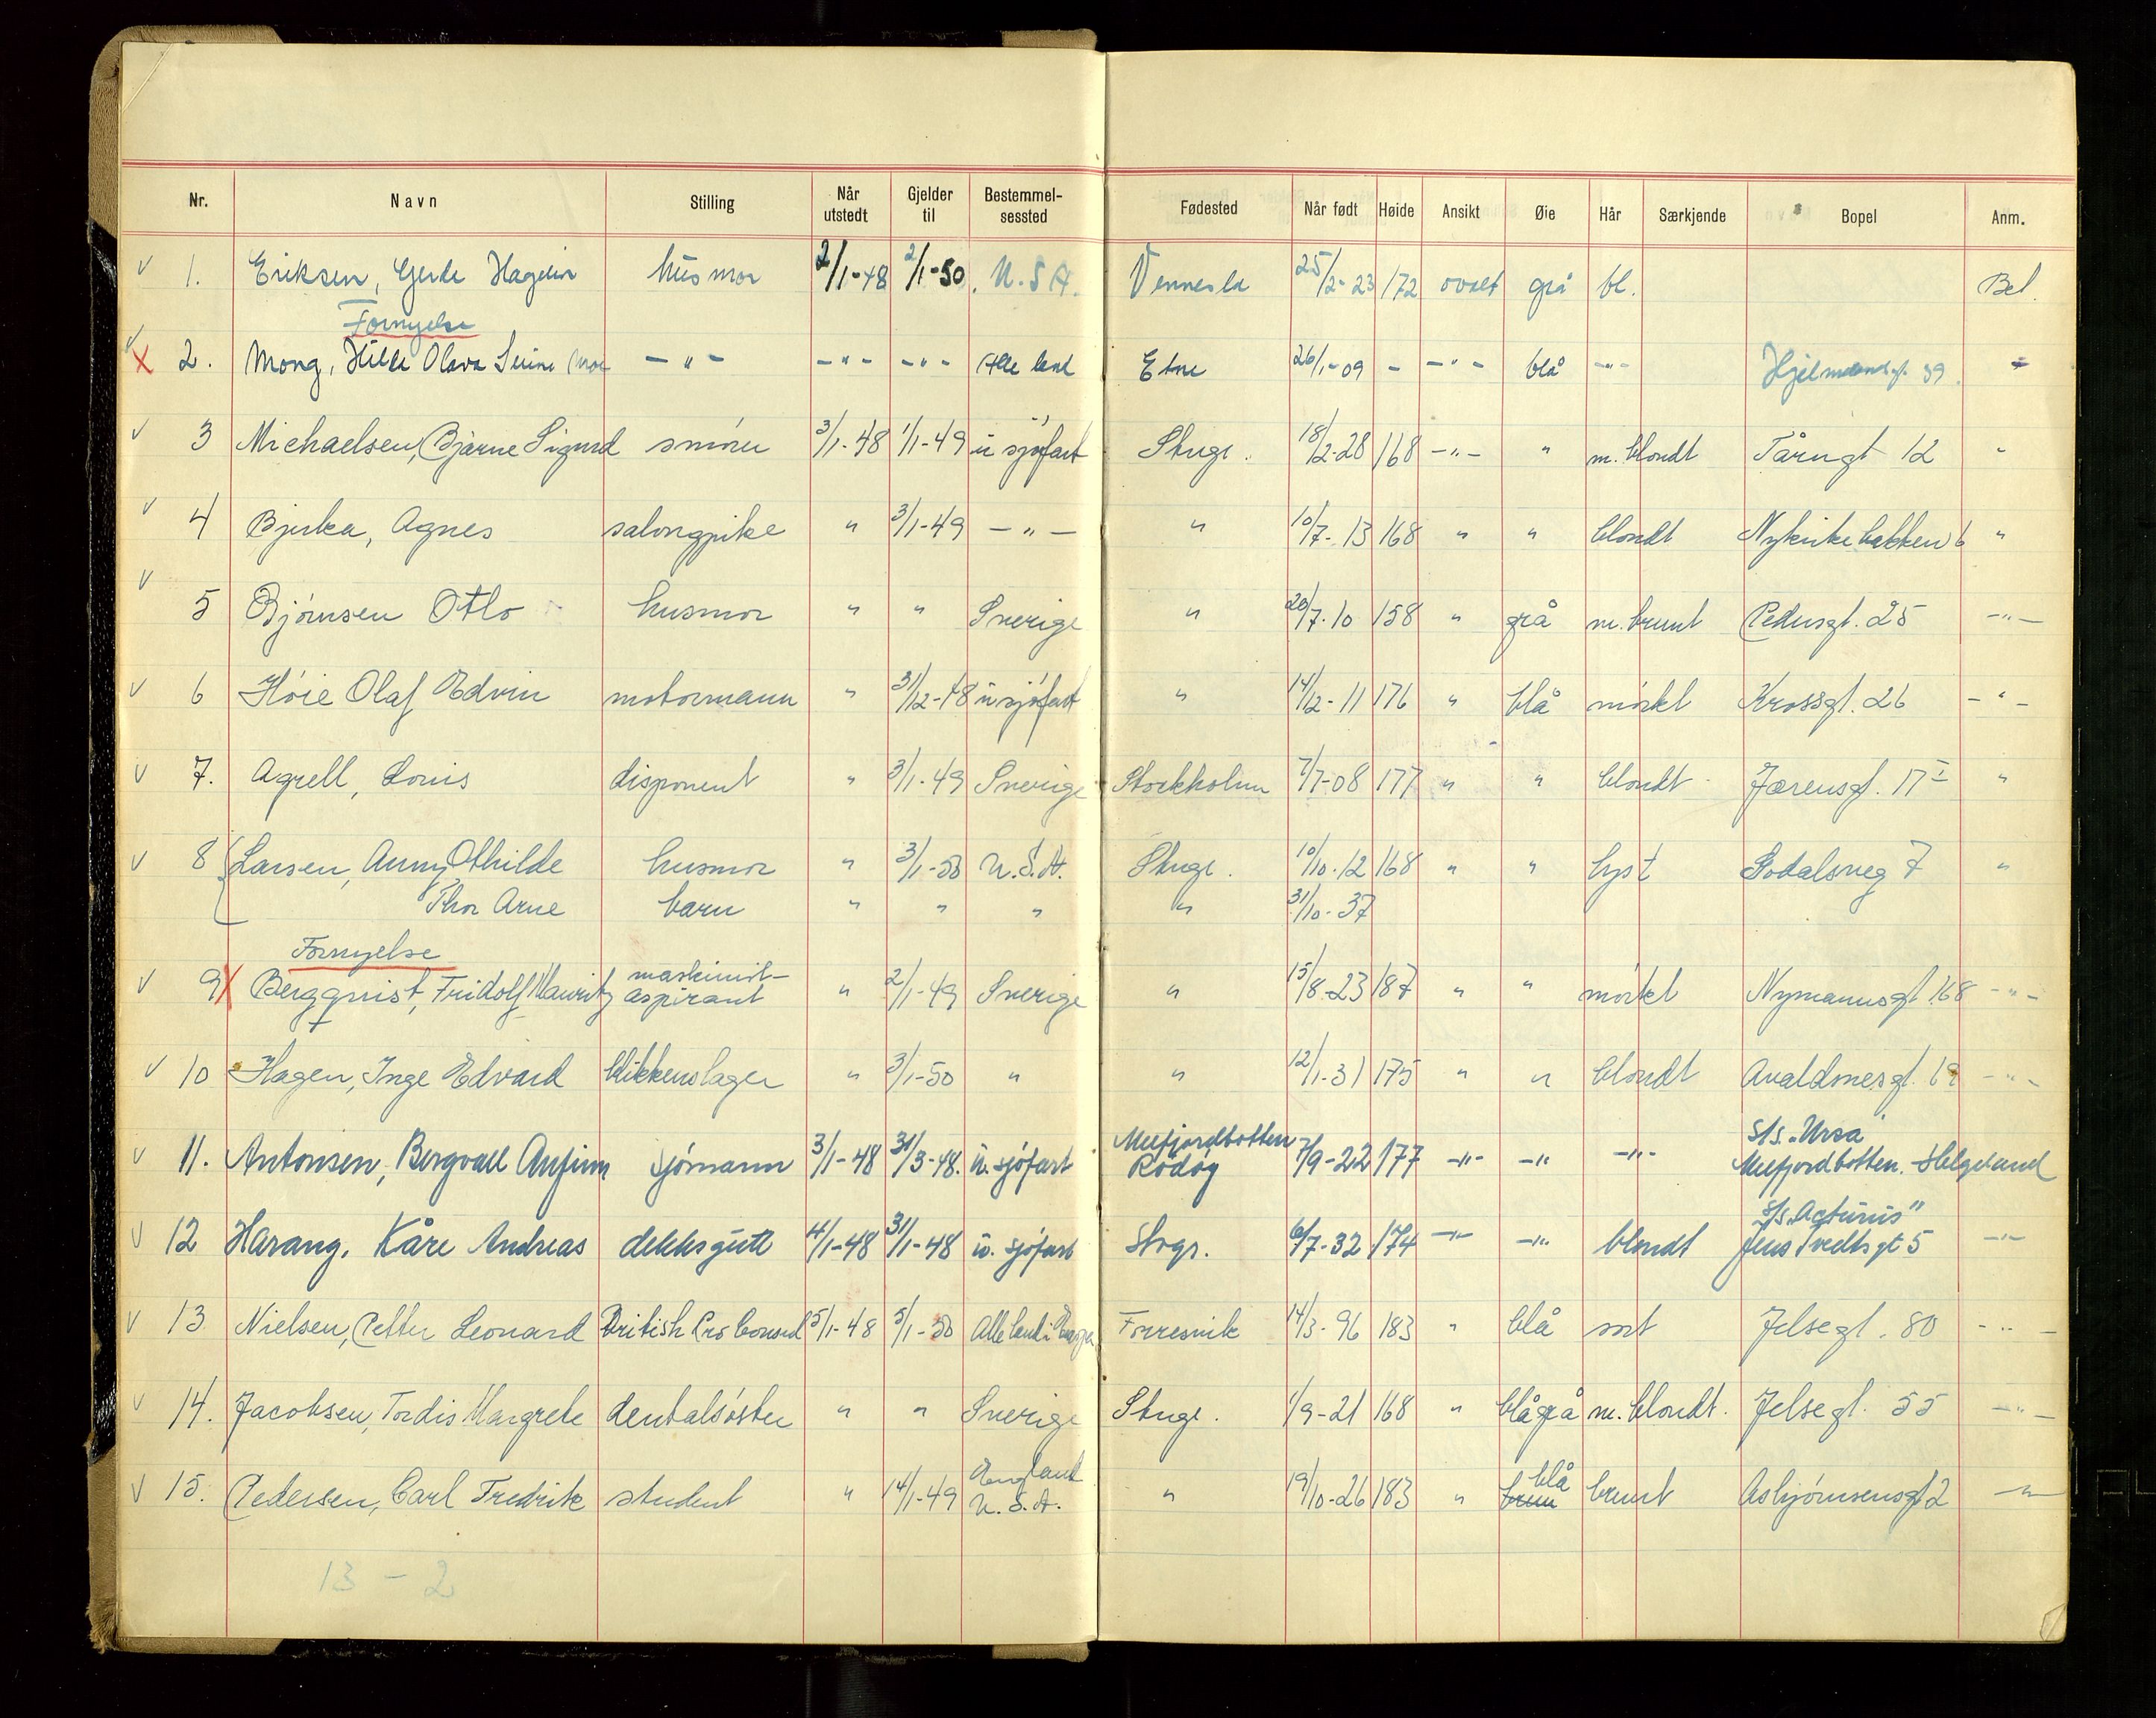 Nr. Navn Stilling Når utstedt Gjelder til Bestemmelsessted Fødested Når født Høide Ansikt Øie Hår Særkjende Bopel Anm.
1. Eriksen, Gerde Hagelin husmor 2/1-48 2/1-50. U.S.A. Vennesla 25/2-23 172 ovalt grå bl. Bet.
Fornyelse
2. Mong, Hilde Olava -"- -"- -"- Alle land Etne 26/1-09 - -"- blå -"- Hjelmelandsgt. 39. "
3 Michaelsen, Bjarne Sigurd smører 3/1-48 1/1-49 u sjøfart Stvgr. 18/2-28 168 -"- " m. blondt Tårngt 12 "
4 Bjerka, Agnes salongpike " 3/1-49 -"- " 10/7-13 168 " " blondt Nykirkebakken 6 "
5 Bjørnsen Otlo husmor " " Sverige " 20/7-10 158 " grå m. brunt Pedersgt. 25 -"-
6 Høie Olaf Edvin motormann " 31/12-48 u sjøfart " 14/12-11 176 " blå mørkt Krossgt. 26 -"-
7. Agrell, Louis disponent " 3/1-49 Sverige Stockholm 7/7-08 177 " " blondt Jærensgt. 17 I "
8 Larsen, Anny Othilde husmor " 3/1-50 U.S.A. Stvgr. 10/10-12 168 " " lyst Godalsveg 7 "
Thor Arne barn " " " " 31/10-37
Fornyelse
9 Bergquist, Fridolf Mauritz maskinist-aspirant " 2/1-49 Sverige " 15/8-23 187 " " mørkt Nymannsgt 168 -"-
10 Hagen, Inge Edvard blikkenslager " 3/1-50 " " 12/1-31 175 " " blondt Avaldsnesgt. 69 -"-
S/s. "Ursa"
11. Antonsen, Bergvall Anfinn sjømann 3/1-48 31/3-48. u. sjøfart Melfjordbotten Rødøy 7/9-22 177 -"- -"- -"- Melfjordbotten. Helgeland
S/s. "Acturus"
12 Harang. Kåre Andreas dekksgutt 4/1-48 31/1-48 u. sjøfart Stvgr. 6/7-32 174 -"- -"- blondt Jens Tvedtsgt 5 -"-
13 Nielsen, Petter Leonard British Pro Consul 5/1-48 5/1-50 Alle land i Europa Forresvik 14/3-96 183 " blå sort Jelsegt. 80 -"-
14. Jacobsen, Tordis Margrete dentalsøster " " Sverige Stvgr. 1/9-21 168 " blågrå m. blondt. Jelsegt. 55 -"-
15. Pedersen, Carl Fredrik student " 14/1-49 England U.S.A. " 19/10-26 183 " brun blå brunt Asbjørnsensgt 2 -"-
13 - 2